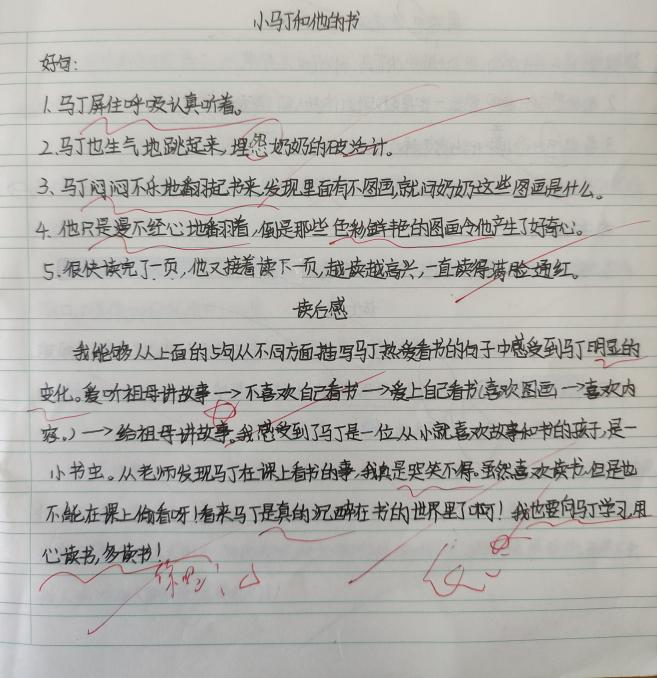 小马丁和他的书
好句:
1.马丁屏住呼吸认真听着。
2.马丁也生气地跳起来,埋怨奶奶的破诡计。
3、马丁闷闷不乐地翻起书来,发现里面有不图画,就问奶奶这些图画是什么。
4、他只是漫不经心地翻着,倒是那些色彩鲜艳的图画令他产生了好奇心。
5、很快读完了一页,他又接着读下一页,越读越高兴,一直读得满脸通红。
读后感
我能够从上面的5句从不同方面描写马丁热爱看书的句子中感受到马丁明显的
变化。爱听祖母讲故事→不喜欢自己看书→爱上自己看书(喜欢图画→喜欢内
容。)→给祖母讲故事。我感受到了马丁是一位从小就喜欢故事和书的孩子,是一
小书虫。从老师发现马丁在课上看书的事,我真是哭笑不得。虽然喜欢读书,但是也
不能在课上偷看呀!看来马丁是真的沉醉在书的世界里了啊!我也要向马丁学习,用
心读书,多读书!